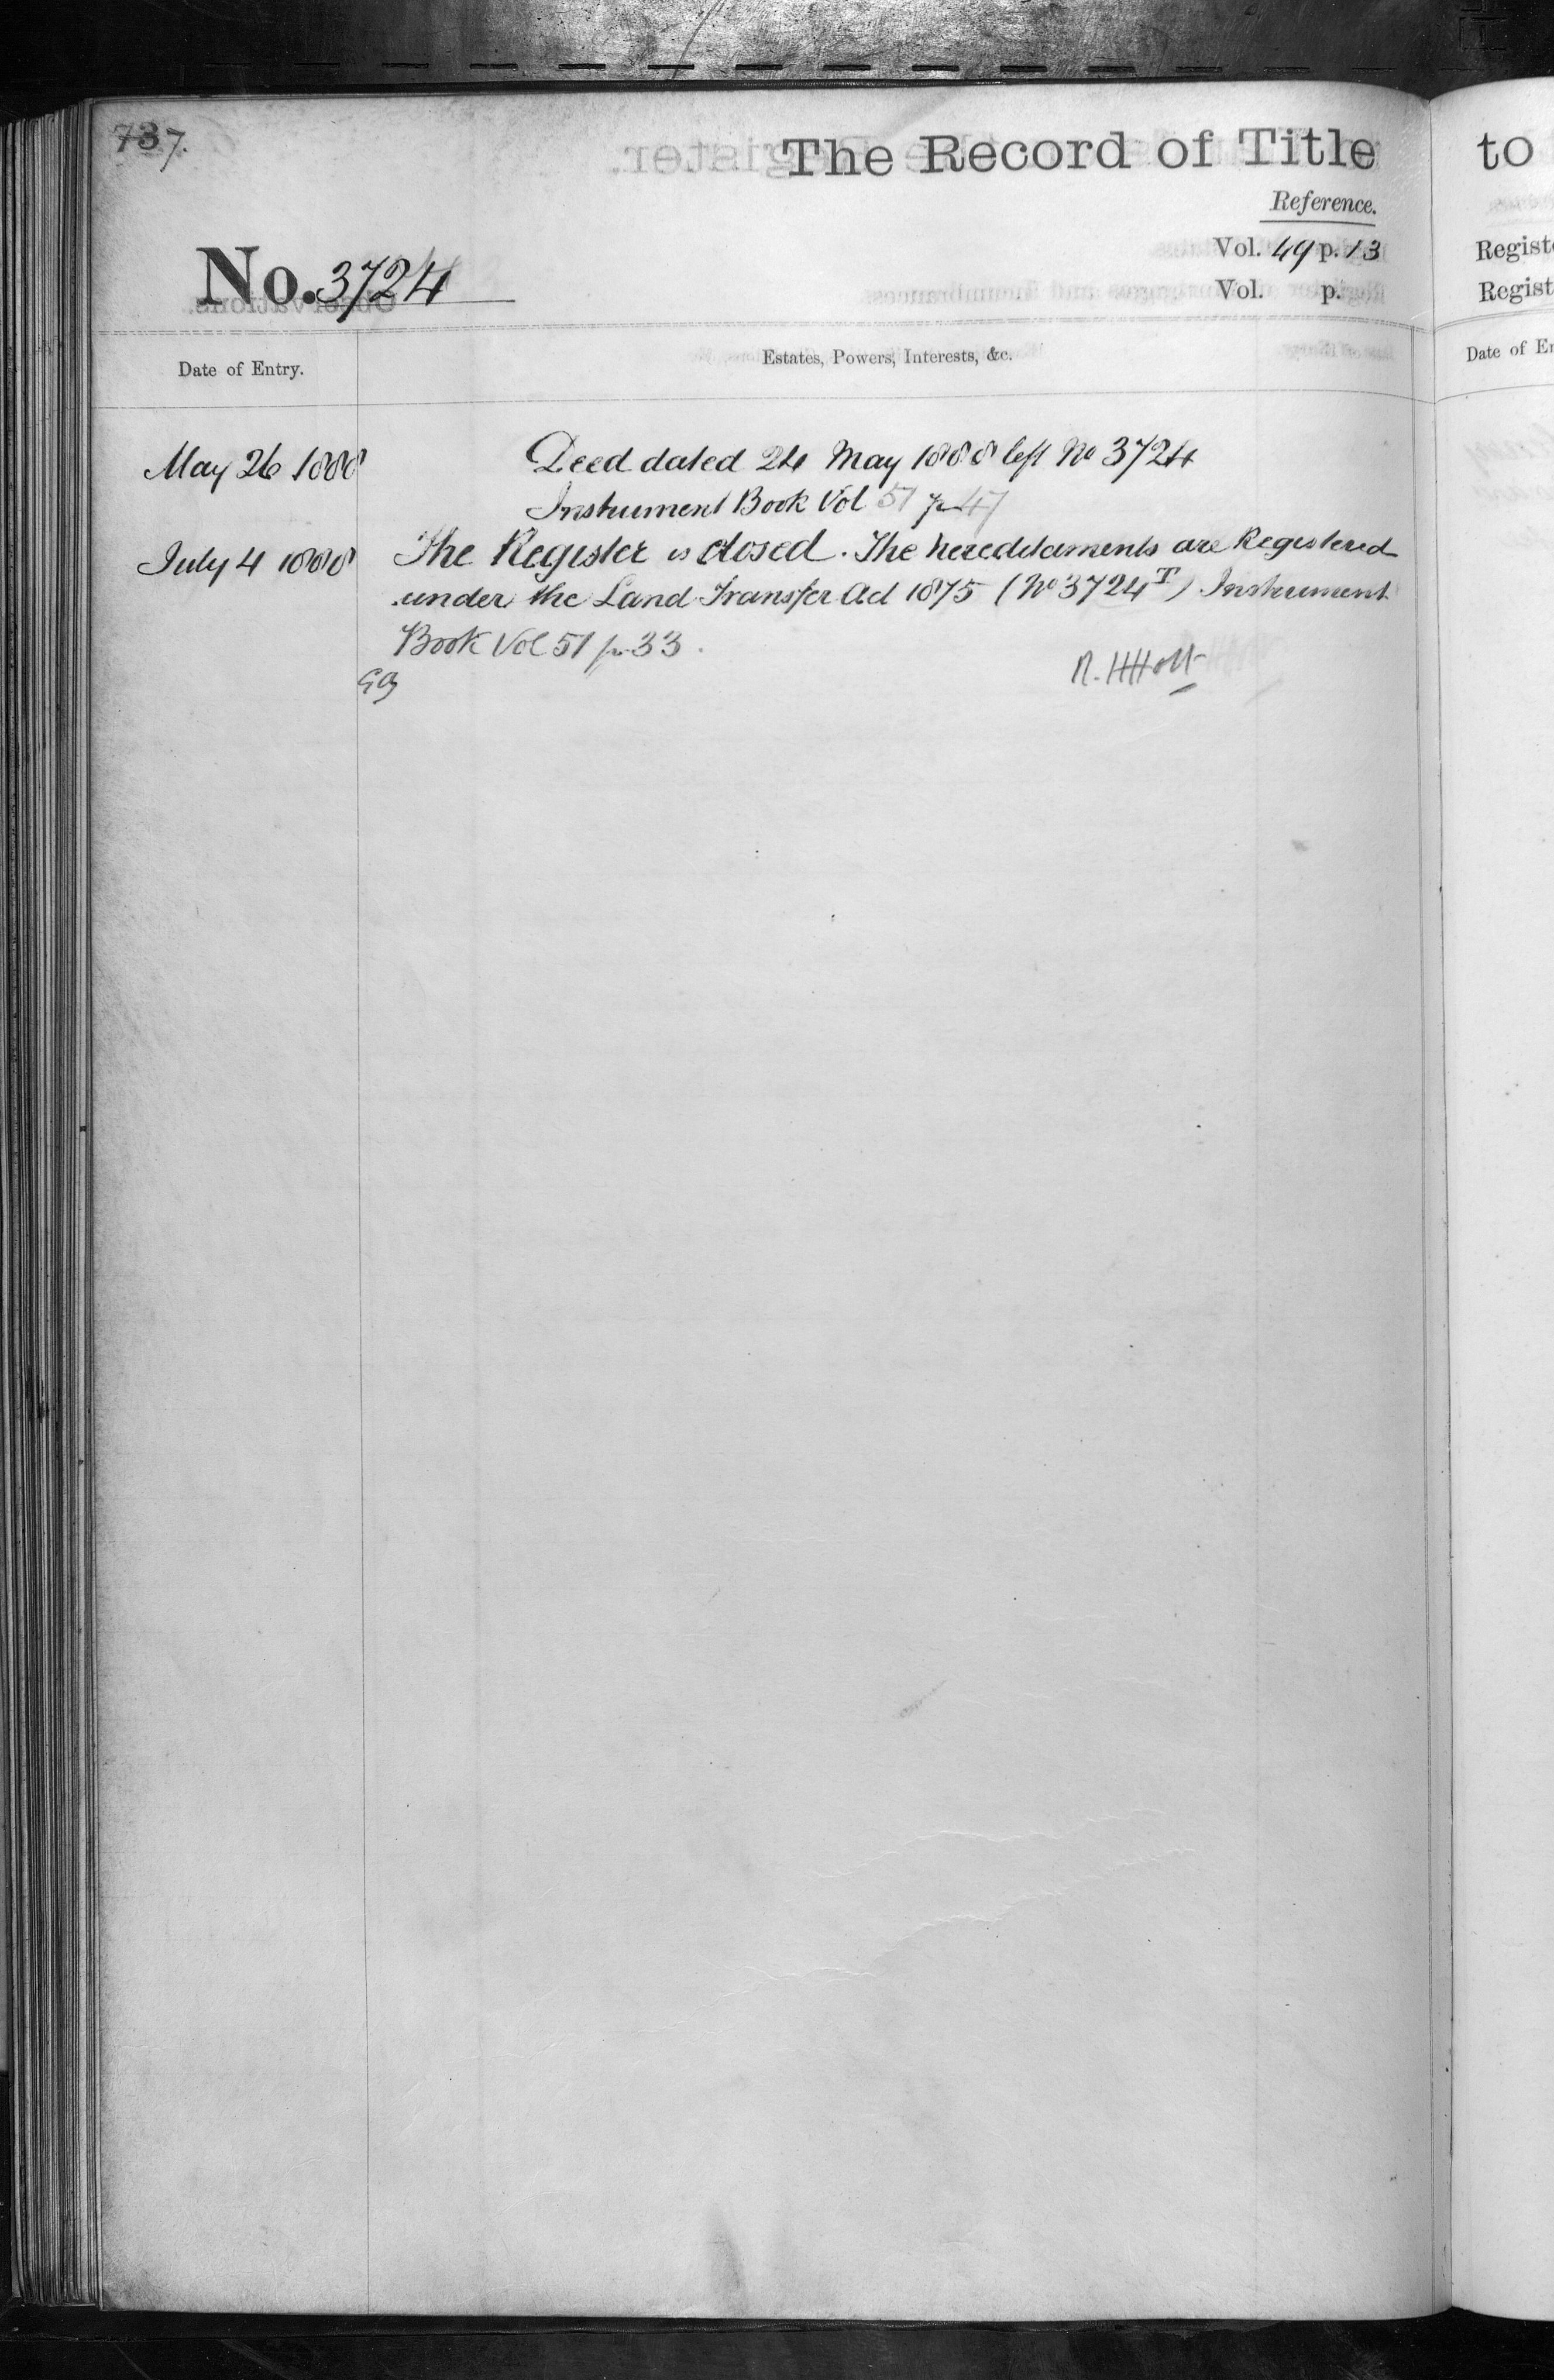 737.
The Record of Title
Reference.
Vol. 49 p. 13
No. 3724
Vol. p.
Date of Entry.
Estates, Powers, Interests, &c.
May 26 1888
Deed dated 24 May 1888 left No 3724
Instrument Book Vol 51 p 47
July 4 1888
The Register is closed. The hereditaments are Registered
under the Land Transfer Act 1875 (No 3724T) Instrument
Book Vol 51 p 33.
R. H Holt
to
Regist
Regist
Date of En